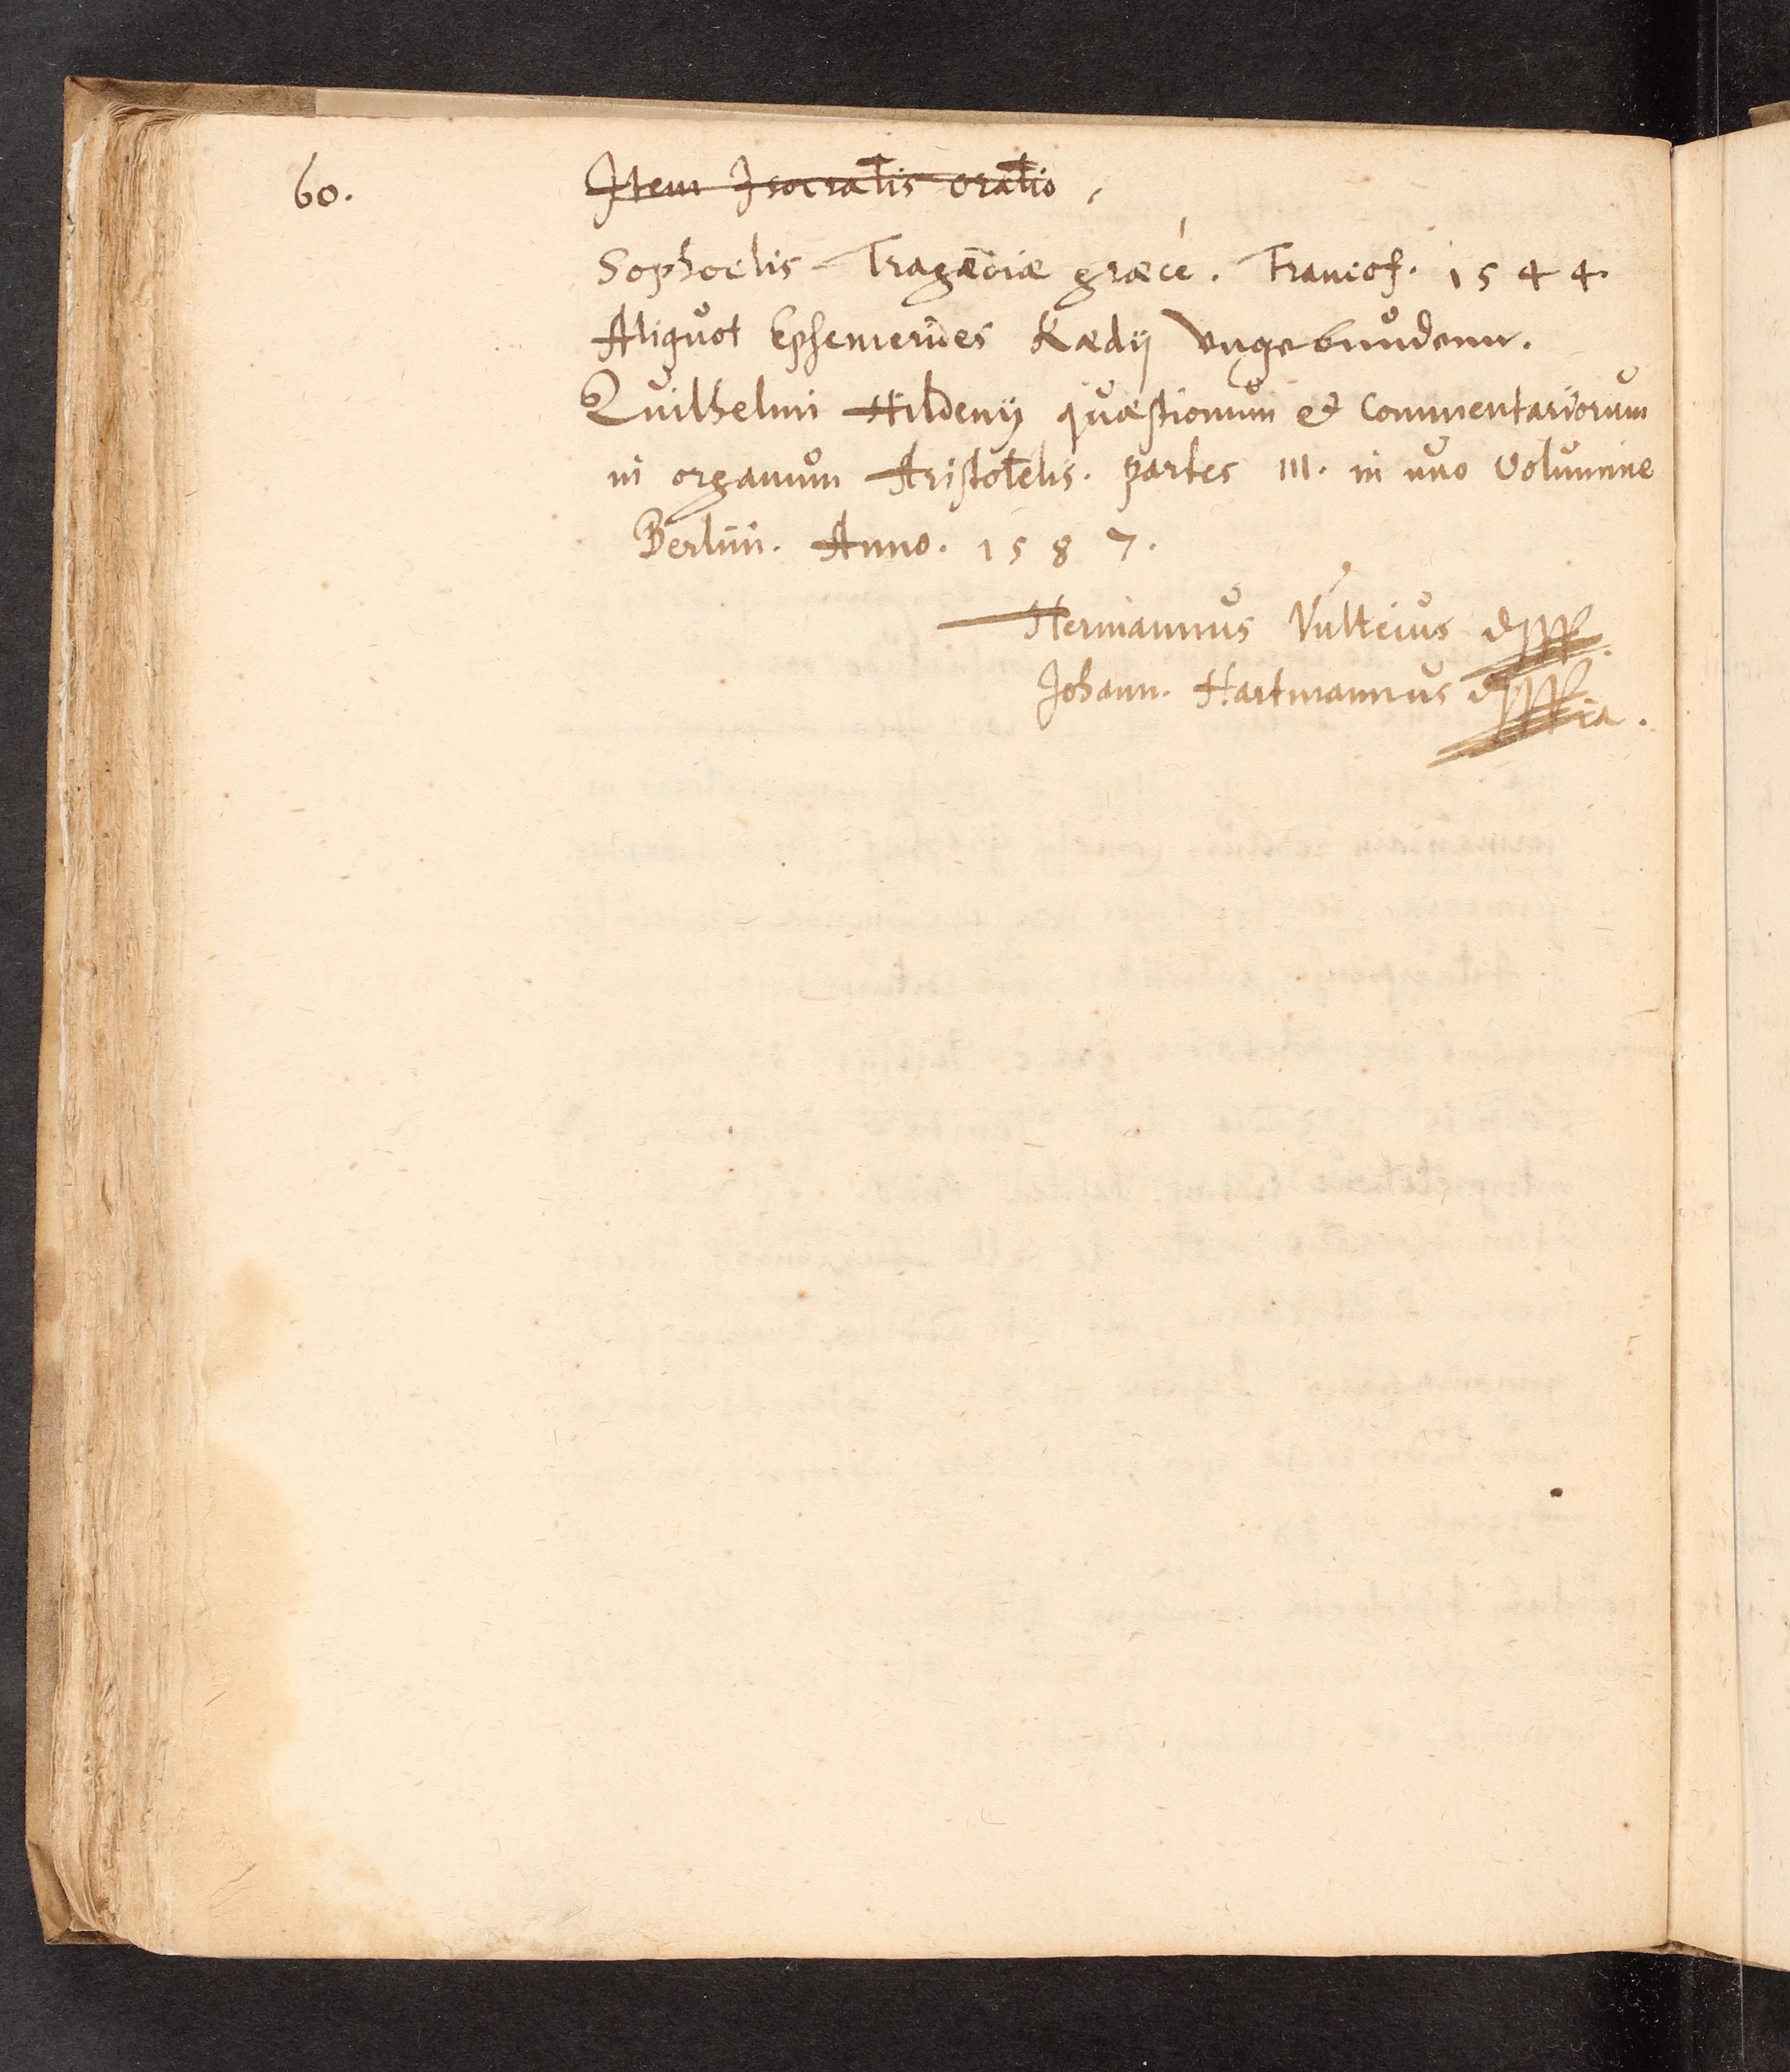 60.
Item Isocratis oratio,
Sophoclis Tragædiæ græcè. Francof. 1544.
Aliquot Ephemerides Rædij Vngebundenn.
Quilhelmi Hildenij quæstionum et Commentariorum
in organum Aristotelis. partes III. in uno Volumine
Berlini. Anno. 1587.
Hermannus Vulteius
Johann. Hartmannus